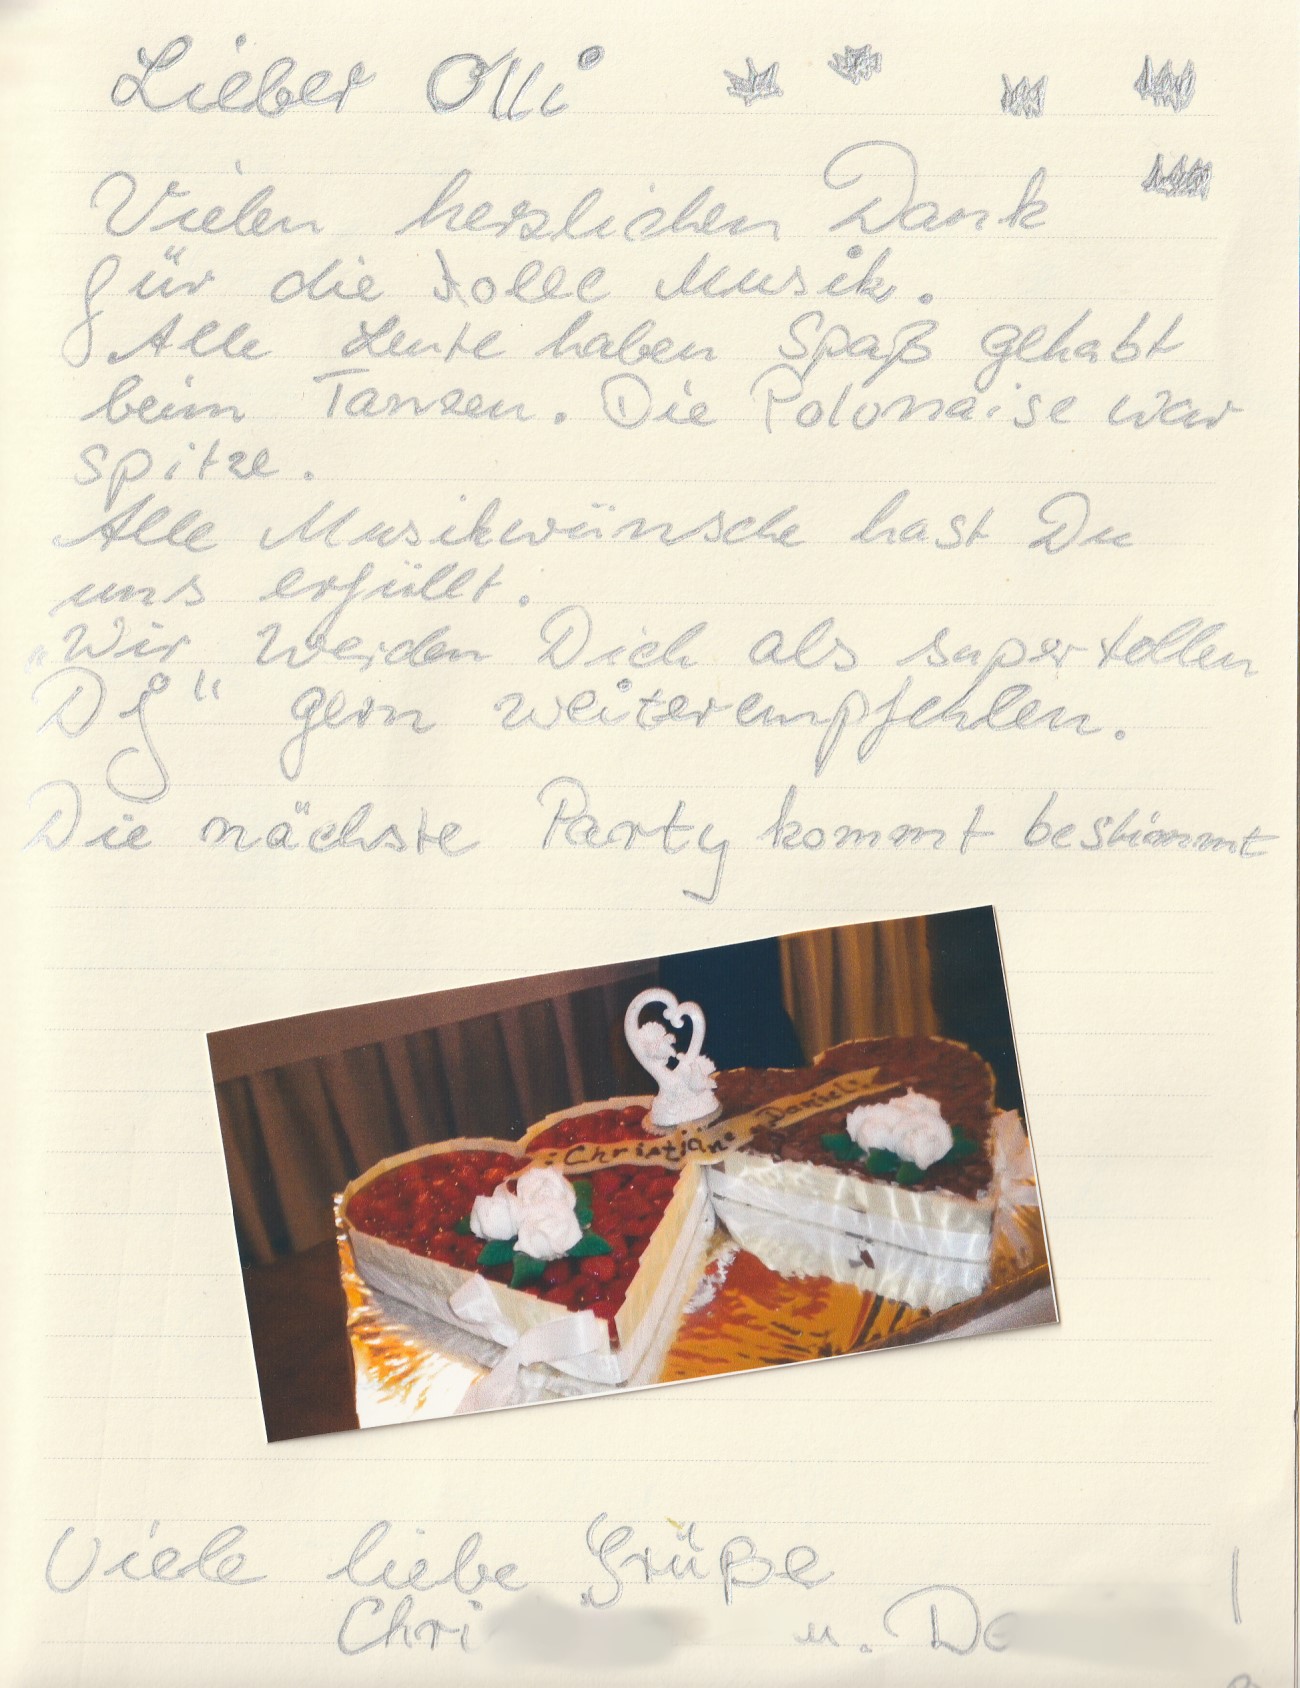 Lieber Olli
Vielen herzlichen Dank
für die tolle Musik.
Alle Leute haben Spaß gehabt
beim Tanzen. Die Polonaise war
spitze.
Alle Musikwünsche hast Du
uns erfüllt.
„Wir werden Dich als supertollen
Dj“ gern weiterempfehlen.
Die nächste Party kommt bestimmt
Christian u. Daniela
Viele liebe Grüße
Chri u. Da